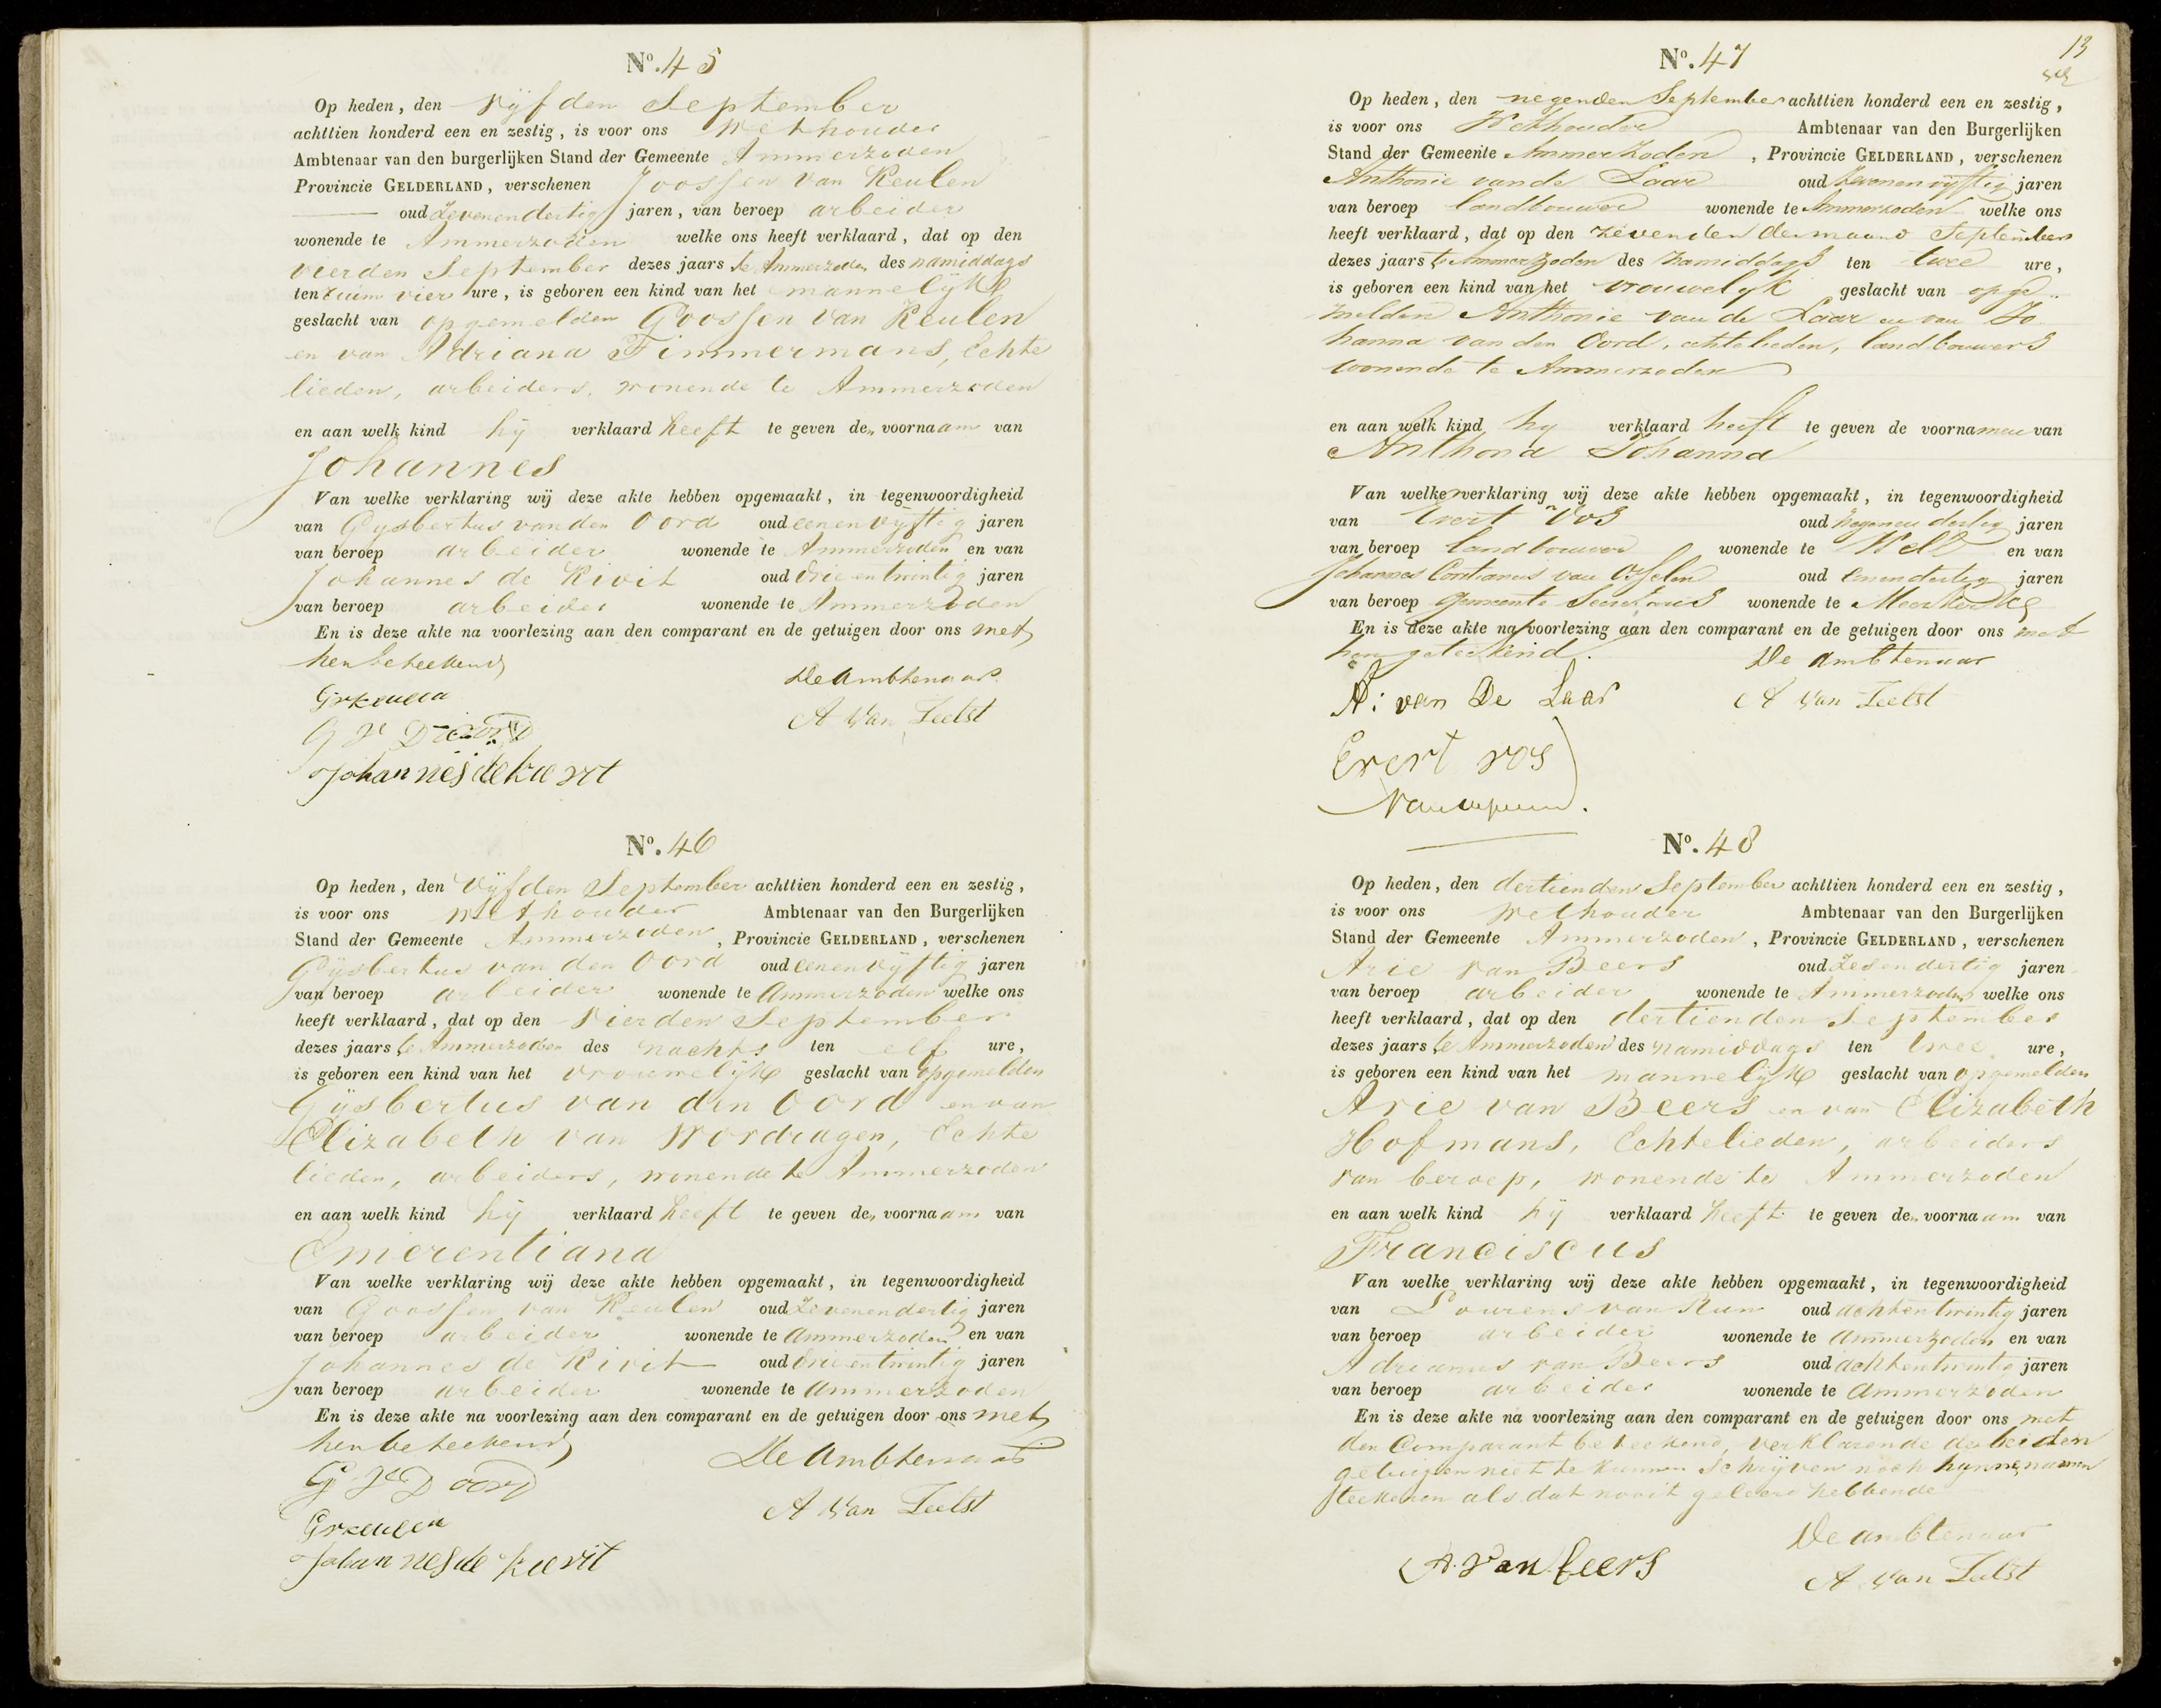 Nº. 45
Op heden, den vijfden September
achttien honderd een en zestig, is voor ons Wethouder
Ambtenaar van den burgerlijken Stand der Gemeente Ammerzoden
Provincie GELDERLAND, verschenen Goossen van Keulen
oud Zevenendertig jaren, van beroep arbeider
wonende te Ammerzoden welke ons heeft verklaard, dat op den
vierden September dezes jaars te Ammerzoden des namiddags
ten ruim vier ure, is geboren een kind van het mannelijk
geslacht van opgemelden Goossen van Keulen
en van Adriana Timmermans, Echte
lieden, arbeiders, wonende te Ammerzoden
en aan welk kind hij verklaard heeft te geven den voornaam van
Johannes
Van welke verklaring wij deze akte hebben opgemaakt, in tegenwoordigheid
van Gysbertus van den Oord oud eenenvijftig jaren
van beroep arbeider wonende te Ammerzoden en van
Johannes de Kivit oud drieentwintig jaren
van beroep arbeider wonende te Ammerzoden
En is deze akte na voorlezing aan den comparant en de getuigen door ons met
hen beteekend
De Ambtenaar
Gvkeulen
A van Zeelst
G V D oord
Johannes de kievit
Nº. 46
Op heden, den vijfden September achttien honderd een en zestig,
is voor ons wethouder Ambtenaar van den Burgerlijken
Stand der Gemeente Ammerzoden, Provincie GELDERLAND, verschenen
Gijsbertus van den Oord oud eenenvijftig jaren
van beroep arbeider wonende te Ammerzoden welke ons
heeft verklaard, dat op den vierden September
dezes jaars te Ammerzoden des nachts ten elf ure,
is geboren een kind van het vrouwelijk geslacht van opgemelden
Gijsbertus van den Oord en van
Elizabeth van Wordragen, Echte
lieden, arbeiders, wonende te Ammerzoden
en aan welk kind hij verklaard heeft te geven den voornaam van
Emerentiana
Van welke verklaring wij deze akte hebben opgemaakt, in tegenwoordigheid
van Goossen van Keulen oud Zevenendertig jaren
van beroep arbeider wonende te Ammerzoden en van
Johannes de Kivit oud drieentwintig jaren
van beroep arbeider wonende te Ammerzoden
En is deze akte na voorlezing aan den comparant en de getuigen door ons met
hen beteekend
De Ambtenaar
G V D oord
A van Zeelst
Gvkeulen
Johannes de kievit
13
Nº. 47
Op heden, den negenden September achttien honderd een en zestig,
is voor ons Wethouder Ambtenaar van den Burgerlijken
Stand der Gemeente Ammerzoden, Provincie GELDERLAND, verschenen
Anthonie van de Laar oud Zevenenvijftig jaren
van beroep landbouwer wonende te Ammerzoden welke ons
heeft verklaard, dat op den zevenden der maand September
dezes jaars te Ammerzoden des namiddags ten twee ure,
is geboren een kind van het vrouwelyk geslacht van opge-
melden Anthonie van de Laar en van Jo
hanna van den Oord, echtelieden, landbouwers
wonende te Ammerzoden
en aan welk kind hy verklaard heeft te geven de voornamen van
Anthona Johanna
Van welke verklaring wij deze akte hebben opgemaakt, in tegenwoordigheid
van Evert Vos oud Negenendertig jaren
van beroep landbouwer wonende te Well en van
Johannes van oud Eenendertig jaren
van beroep gemeente Secretaris wonende te
En is deze akte na voorlezing aan den comparant en de getuigen door ons met
hen geteekend.
De Ambtenaar
A: van De Laar
A van Zeelst
Evert vos
Nº. 48
Op heden, den dertienden September achttien honderd een en zestig,
is voor ons Wethouder Ambtenaar van den Burgerlijken
Stand der Gemeente Ammerzoden, Provincie GELDERLAND, verschenen
Arie van Beers oud Zesendertig jaren
van beroep arbeider wonende te Ammerzoden welke ons
heeft verklaard, dat op den dertienden September
dezes jaars te Ammerzoden des namiddags ten twee ure,
is geboren een kind van het mannelijk geslacht van opgemelden
Arie van Beers en van Elizabeth
Hofmans, Echtelieden, arbeiders
van beroep, wonende te Ammerzoden
en aan welk kind hij verklaard heeft te geven den voornaam van
Franciscus
Van welke verklaring wij deze akte hebben opgemaakt, in tegenwoordigheid
van Lourens van Run oud achtentwintig jaren
van beroep arbeider wonende te Ammerzoden en van
Adrianus van Beers oud achtentwintig jaren
van beroep arbeider wonende te Ammerzoden
En is deze akte na voorlezing aan den comparant en de getuigen door ons met
den Comparant beteekend, verklarende de beiden
getuigen niet te kunnen schrijven noch hunne namen
teekenen als dat nooit geleerd hebbende
De ambtenaar
A. van beers
A van Zeelst